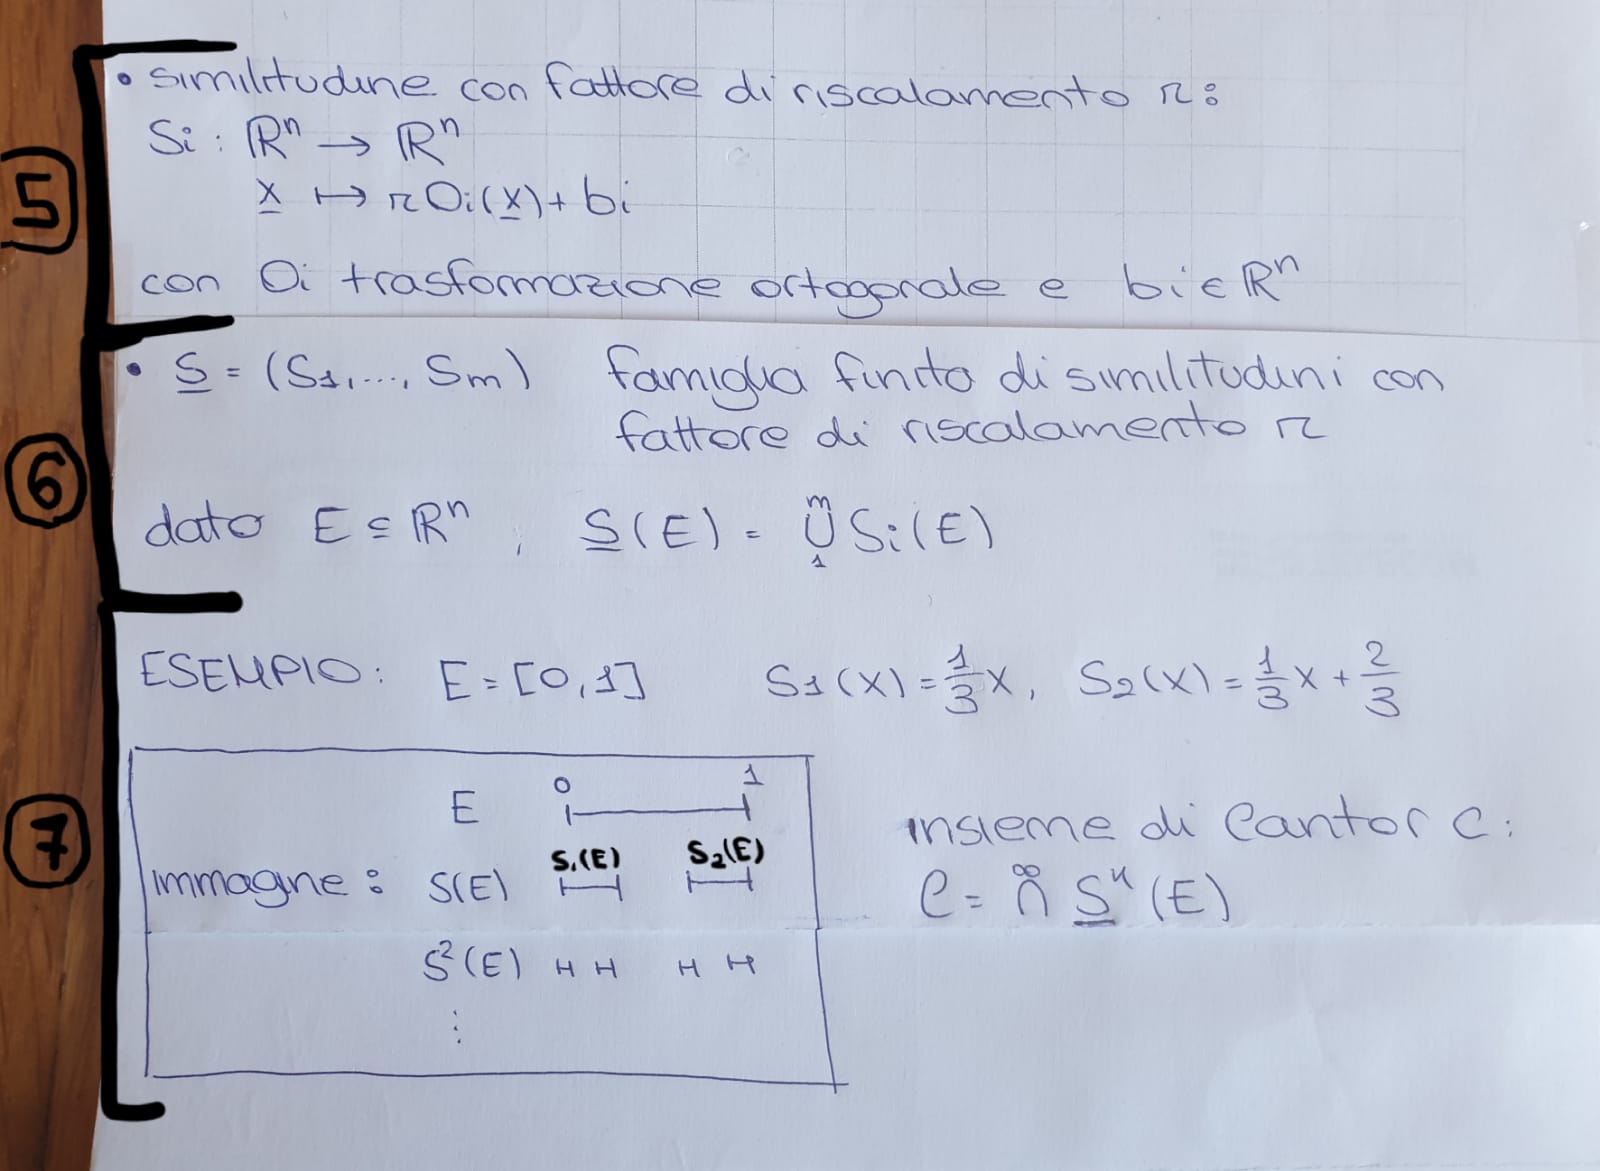 5
• similitudine con fattore di riscalamento r:
Si : ℝⁿ → ℝⁿ
x ↦ r Oi(x) + bi
con Oi trasformazione ortogonale e bi ∈ ℝⁿ
6
• S = (S1,..., Sm) famiglia finita di similitudini con
fattore di riscalamento r
dato E ⊆ ℝⁿ, S(E) = ⋃₁ᵐ Si(E)
7
ESEMPIO: E = [0,1] S1(x) = 1/3 x, S2(x) = 1/3 x + 2/3
E 0 1
immagine: S(E) S1(E) S2(E)
S²(E)
⋮
insieme di Cantor C:
C = ⋂^∞ S^k(E)